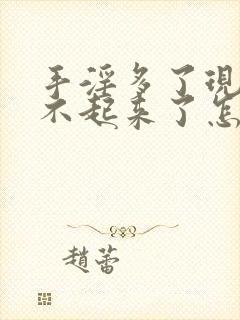 手淫多了現
不起来了怎
趙蕾